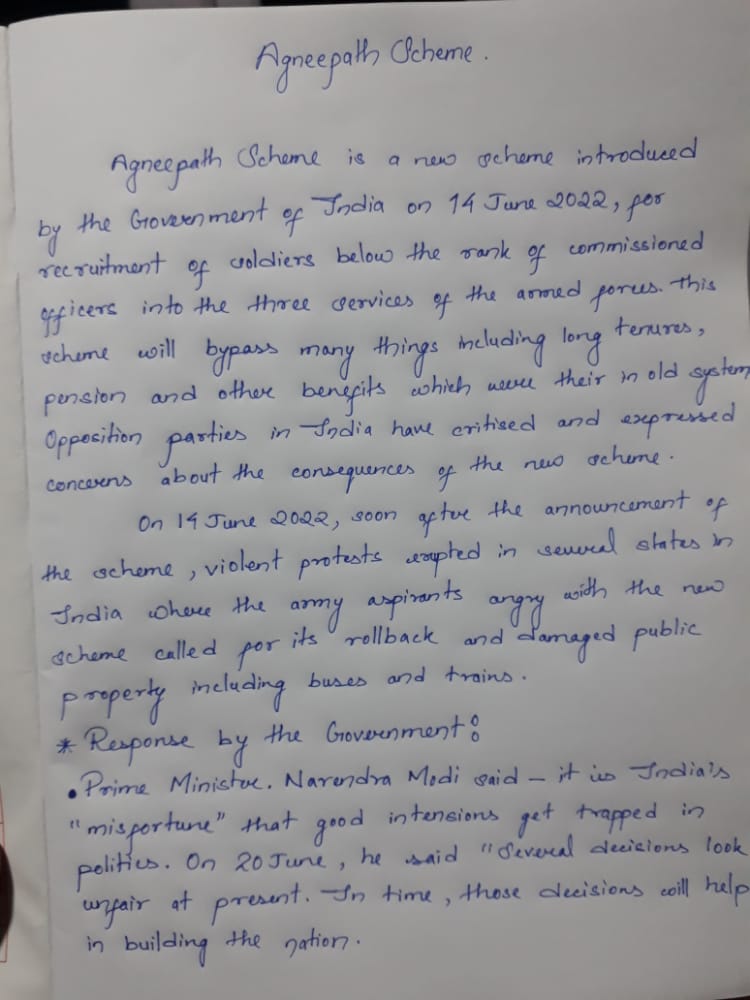 Agneepath Scheme.
Agneepath Scheme is a new scheme introduced
by the Government of India on 14 June 2022, for
recruitment of soldiers below the rank of commissioned
officers into the three services of the armed forces. This
scheme will bypass many things including long tenures,
pension and other benefits which were their in old system
Opposition parties in India have critised and expressed
concerns about the consequences of the new scheme.
On 14 June 2022, soon after the announcement of
the scheme, violent protests erupted in several states in
India where the army aspirants angry with the new
scheme called for its rollback and damaged public
property including buses and trains.
* Response by the Government:
• Prime Minister. Narendra Modi said - it is India's
"misfortune" that good intensions get trapped in
politics. On 20 June, he said "Several decisions look
unfair at present. In time, those decisions will help
in building the nation.